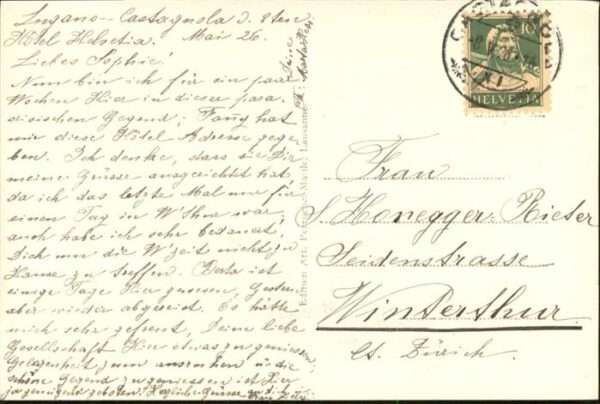 Lugano-Castagnola d. 8ten
Hôtel Helvetia. Mai 26.
Liebes Sophie!
Nun bin ich für ein paar
Wochen hier in dieser para-
disischen Gegend; Fanÿ hat
mir diese Hôtel Adresse gege-
ben. Ich denke, dass sie Dir
meine Grüsse ausgerichtet hat
da ich das letzte Mal nur für
einen Tag in W'thur war,
auch habe ich sehr bedauert
Dich um die W'zeit nicht zu
Hause zu treffen. Papa ist
einige Tage hier gewesen, Gestern
aber wieder abgereist. Es hätte
mich sehr gefreut, Deine liebe
Gesellschaft hier etwas zu geniessen
Gelegenheit zum ausruhen u die
schöne Gegend zu geniessen ist hier
ja genügend geboten. Herzliche Grüsse an dich u.
Deine
Edition Art. Lausanne
HELVETIA
10
CASTAGNOLA
Frau
S. Honegger-Rieter
Seidenstrasse
Winterthur.
Ct. Zürich.